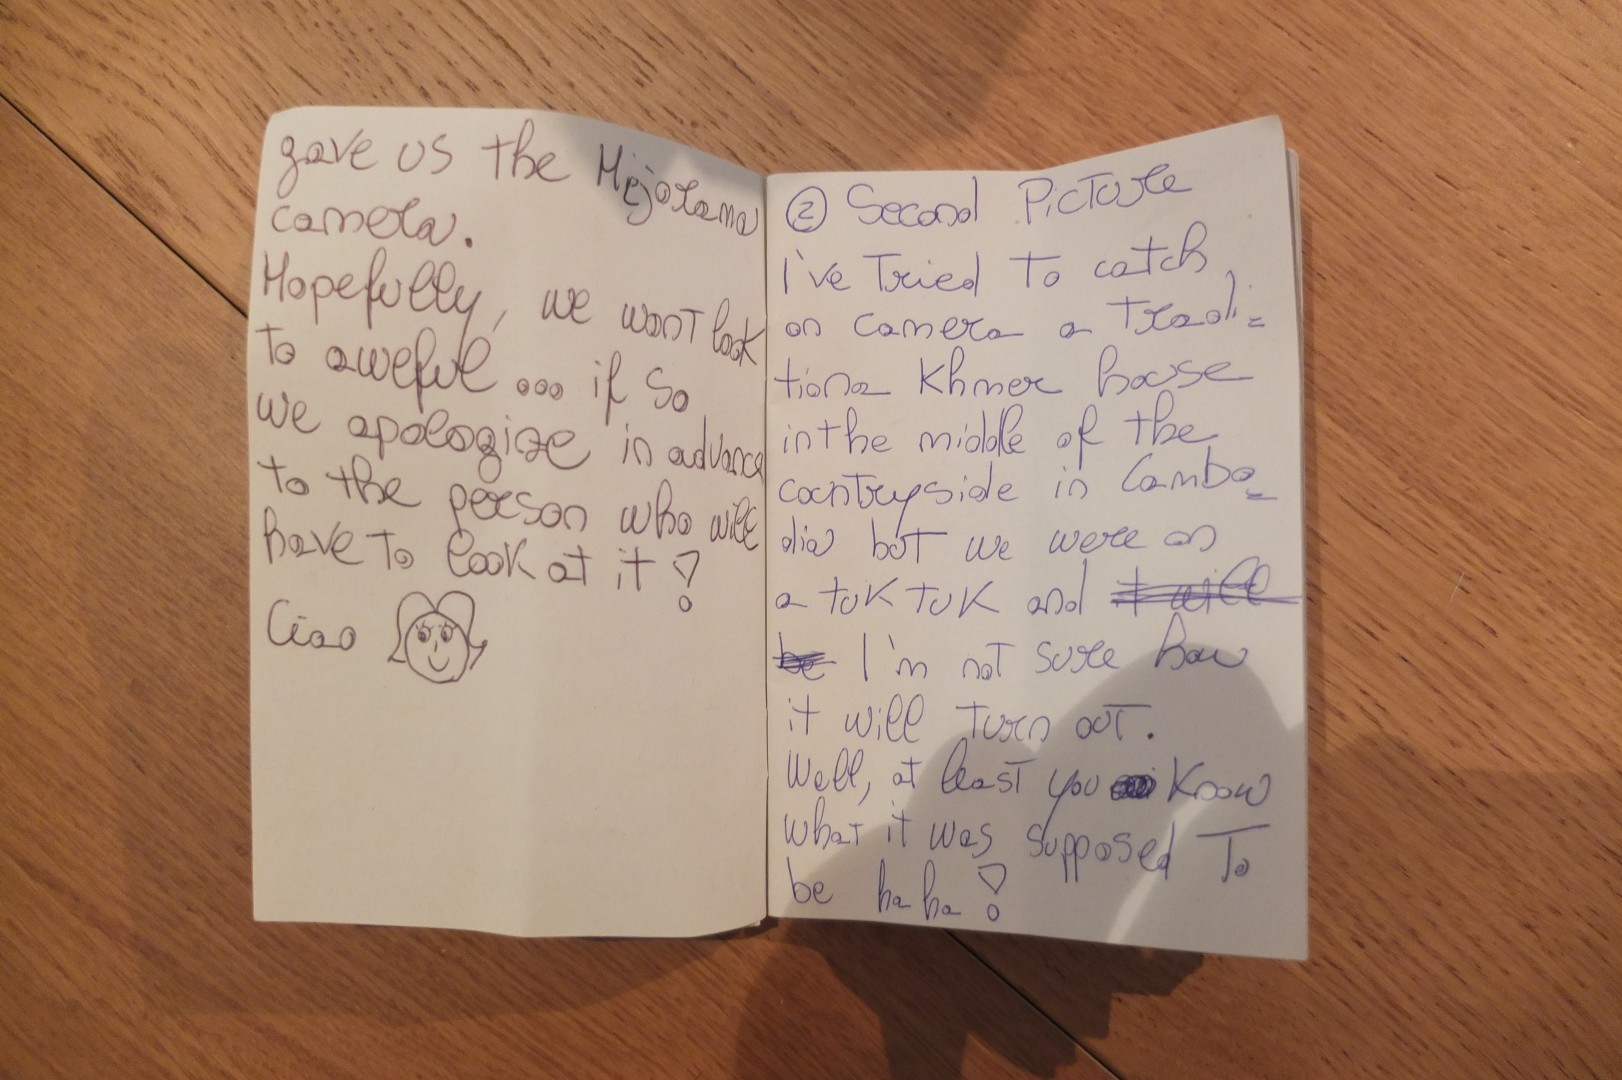 gave us the Mejorama
camera.
Hopefully, we wont look
to aweful ... if so
we apologize in advance
to the person who will
have to look at it !
Ciao
② Second Picture
I've Tried to catch
on camera a Tradi=
tiona Khmer house
in the middle of the
countryside in Cambo=
dia but we were on
a tuk tuk and it will
be I'm not sure how
it will turn out.
Well, at least you know
what it was supposed To
be ha ha !